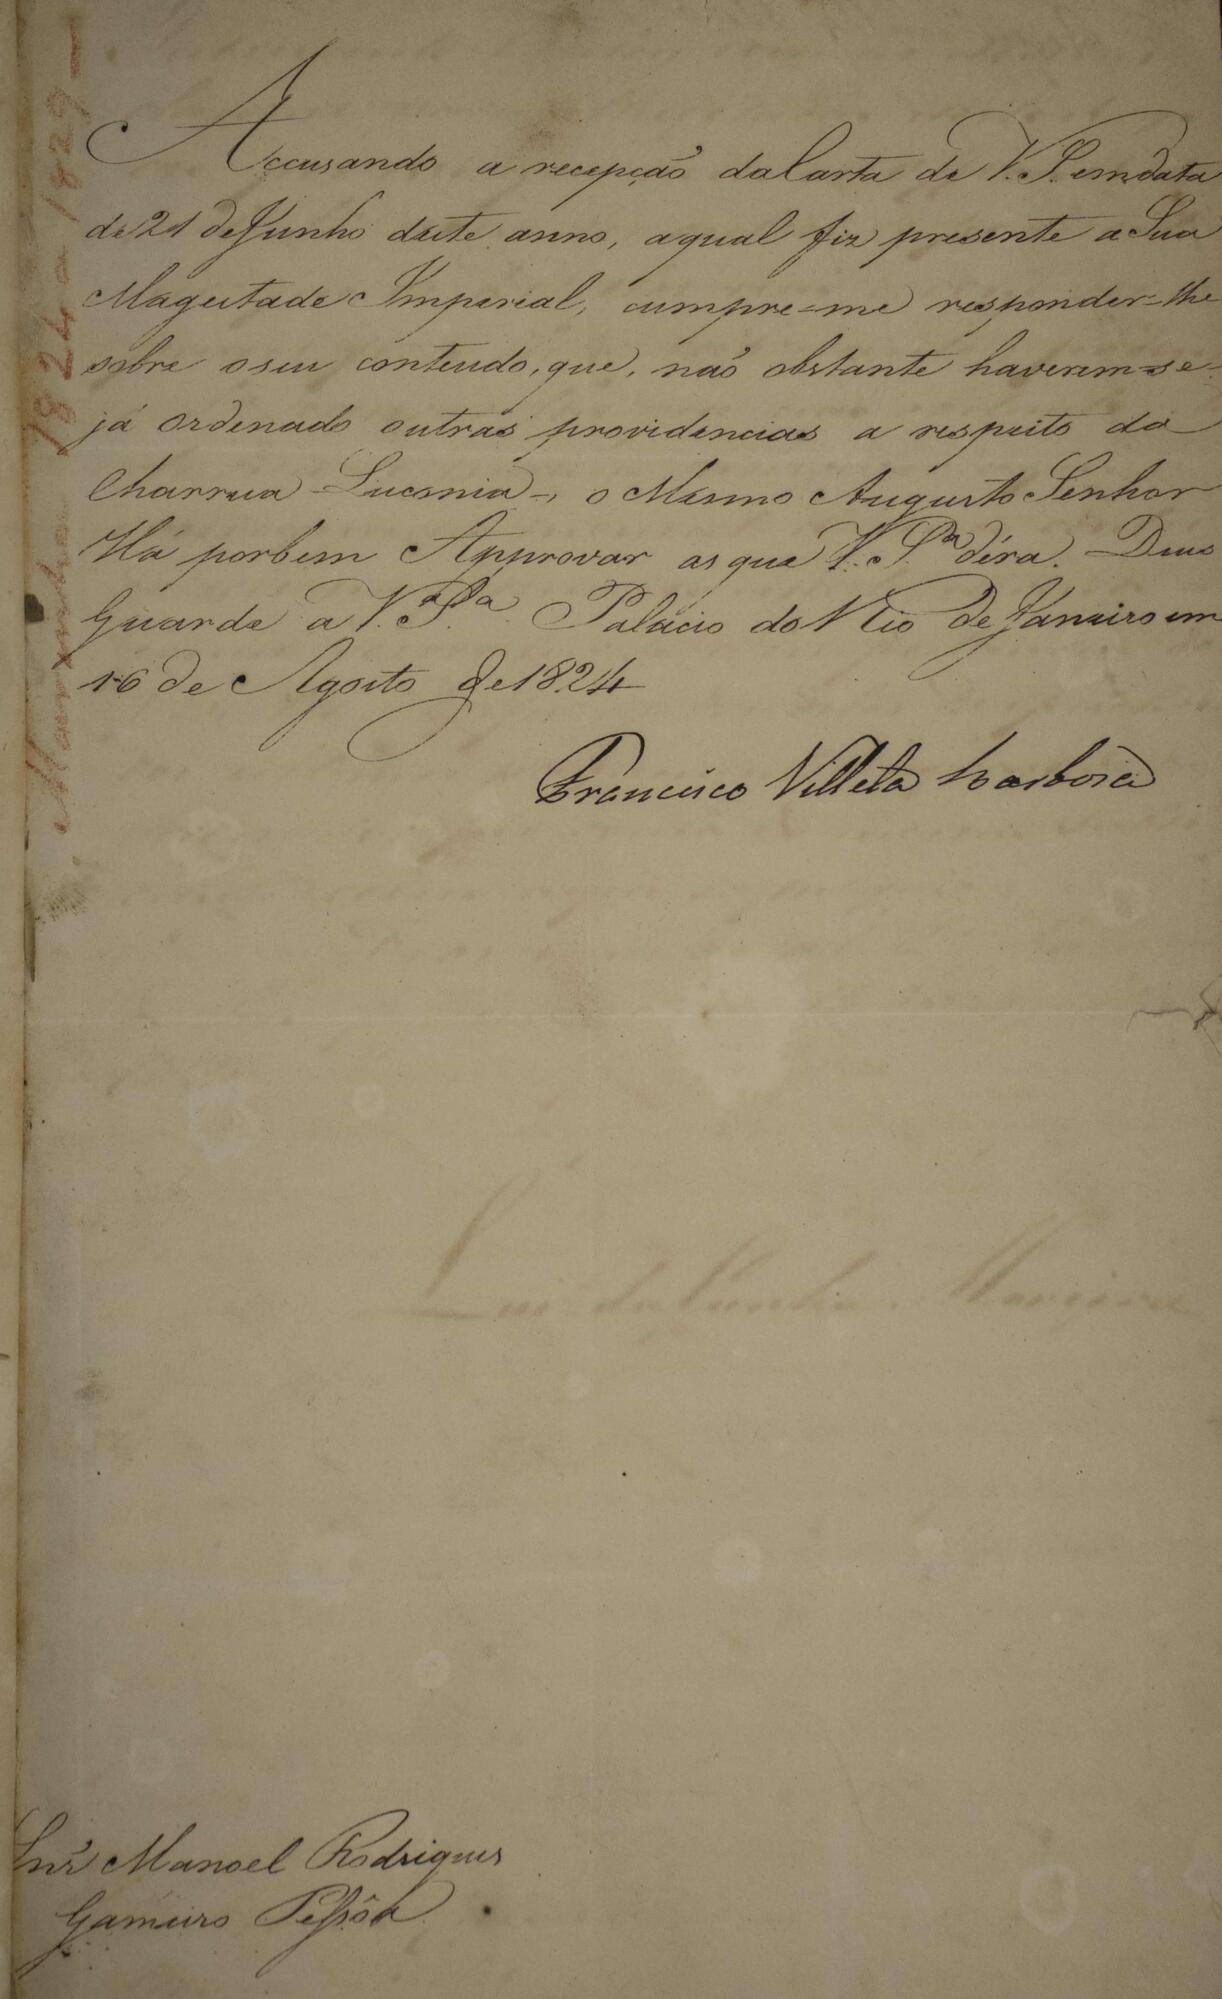 Accusando a recepção da Carta de V. S. em data
de 21 de Junho deste anno, a qual fiz presente a Sua
Magestade Imperial, cumpre-me responder-lhe
sobre o seu conteudo, que, não obstante haverem-se
já ordenado outras providencias a respeito da
Charrua - Luconia -, o Mesmo Augusto Senhor
Há por bem Approvar as que V. Sª déra. Deus
Guarde a V. Sª Palacio do Rio de Janeiro em
16 de Agosto de 1824
Francisco Villela Barbosa
Luis da Cunha Moreira
Snr Manoel Rodrigues
Gameiro Pessôa
Marinha 1824 a 1829